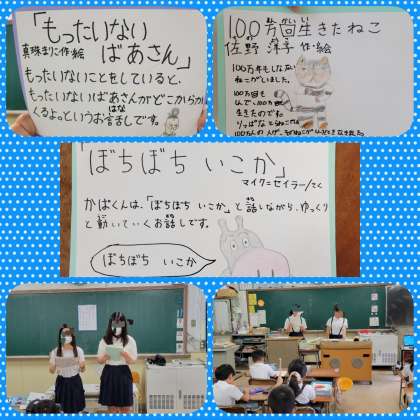 「もったいない
ばあさん」
真珠まりこ作・絵
もったいないことをしていると、
もったいないばあさんがどこからか
くるよっというお話しです。
はな
100万回生きたねこ
佐野 洋子 作・絵
100万年もしなない
ねこがいました。
100万回も
しんで、100万回も
生きたのです。
りっぱなとらねこでした。
「ぼちぼち いこか」
マイク=セイラー/さく
かばくんは、「ぼちぼち いこか」と話しながら、ゆっくり
と動いていくお話しです。
ぼちぼち いこか